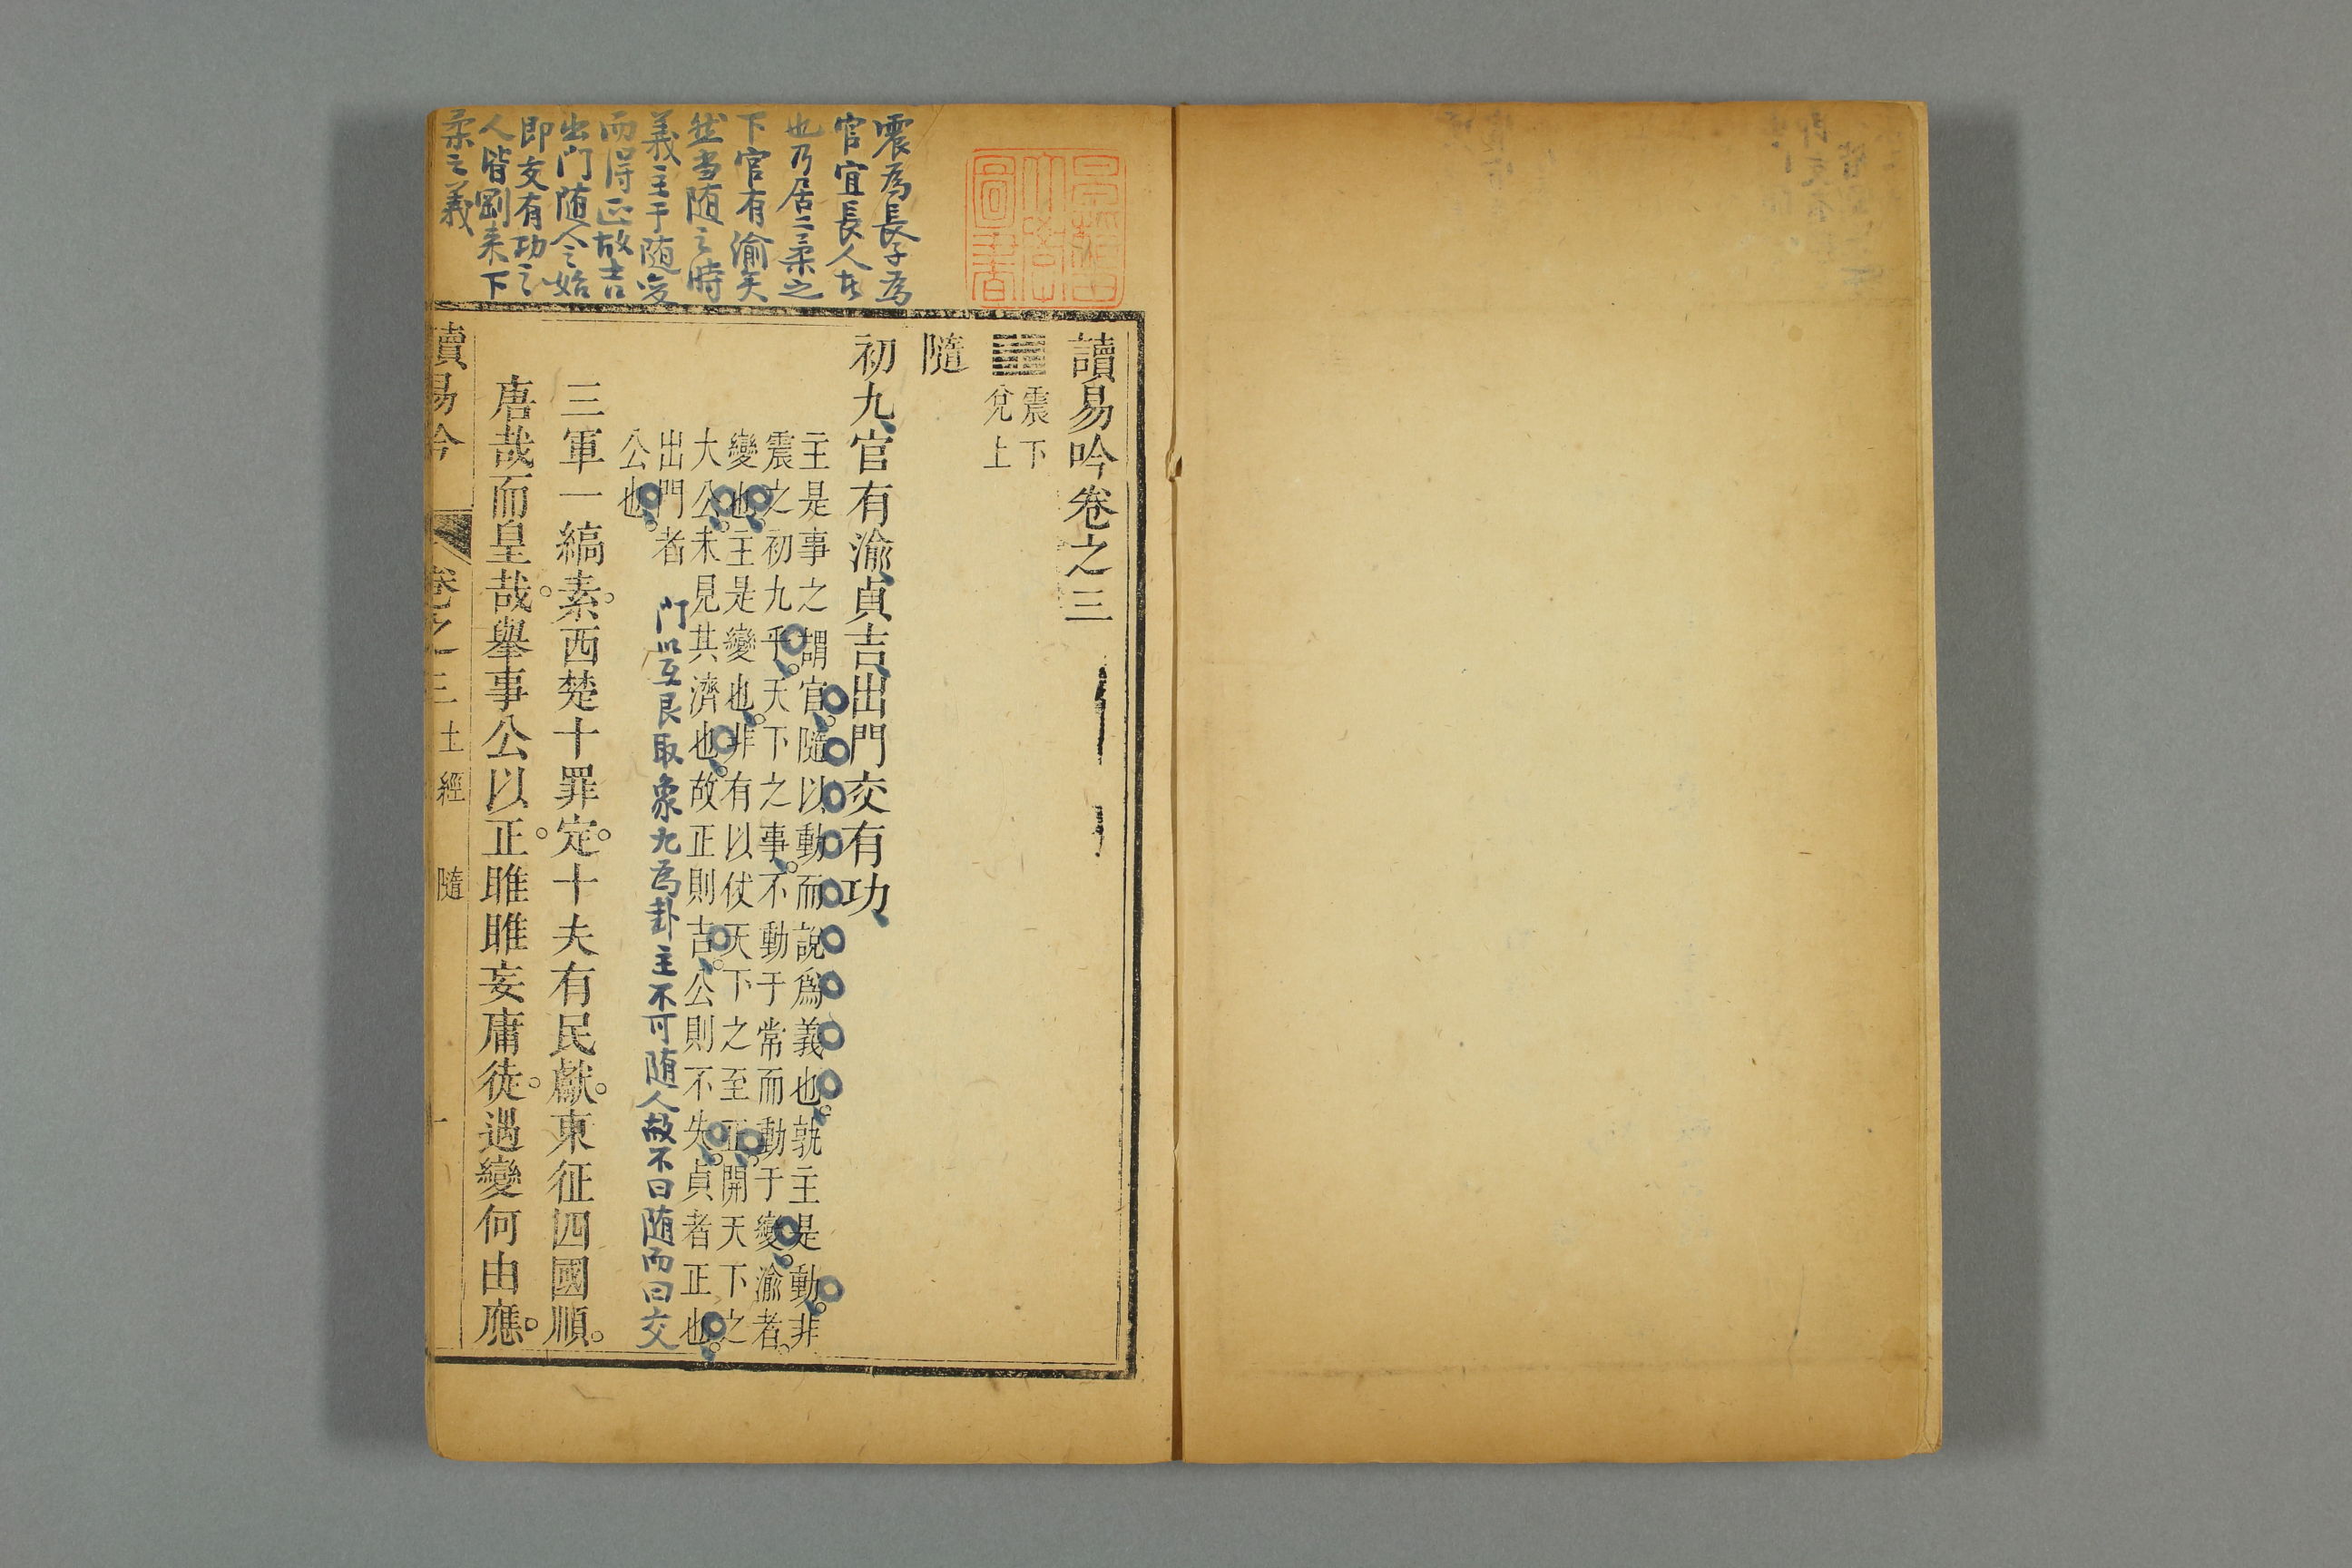 震為長子為
官宜長人在
也乃居二柔之
下官有渝矣
然当随之時
義主于随変
而得正故吉
出門随人之始
即交有功之
人皆剛来下
柔之義
圖書
讀易吟卷之三
震下
兌上
隨
初九官有渝貞吉出門交有功
主是事之謂官。隨以動而說爲義也。孰主是動。非
震之初九乎。天下之事。不動于常而動于變。渝者。
變也。主是變也。非有以仗天下之至正。開天下之
大公。未見其濟也。故正則吉。公則不失。貞者正也。
出門者
公也。
門以互艮取象九為卦主不可随人故不曰随而曰交
三軍一縞素。西楚十罪定。十夫有民獻。東征四國順。
唐哉而皇哉。舉事公以正。睢睢妄庸徒。遇變何由應。
讀易吟 卷之三 上經 隨 一